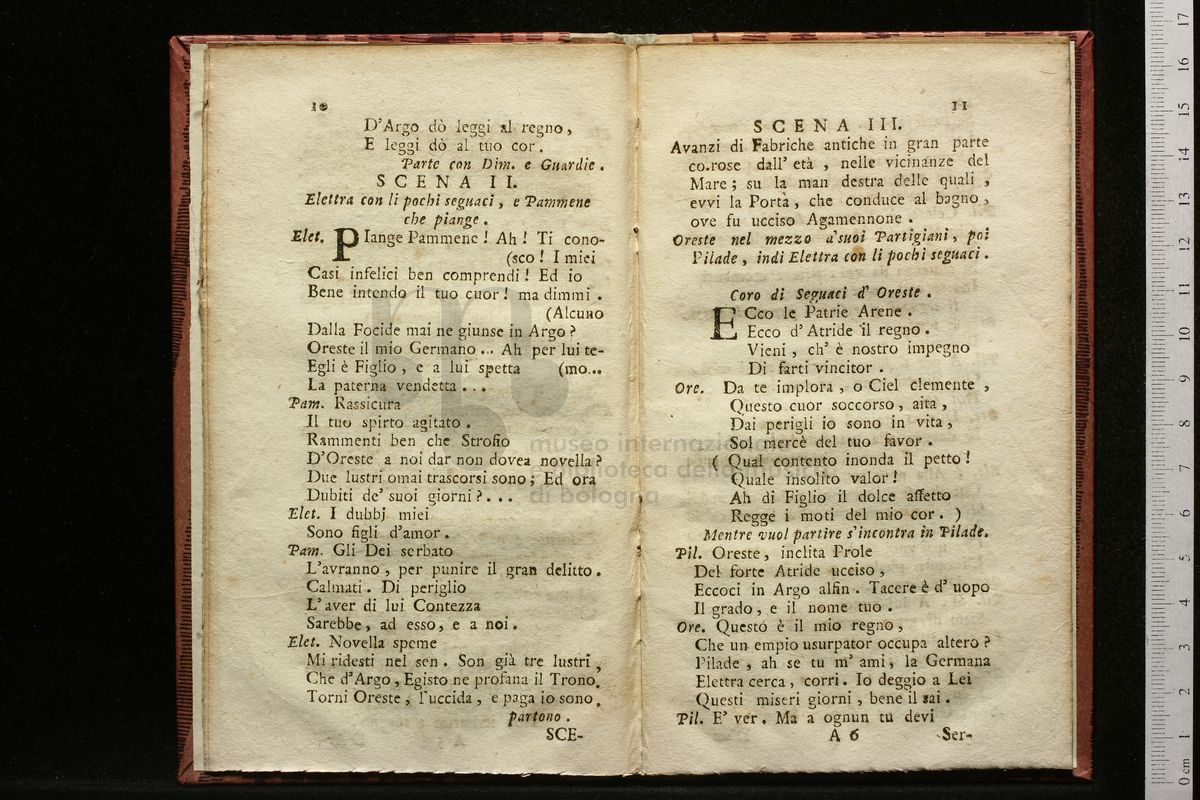 10
D'Argo dò leggi al regno,
E leggi dò al tuo cor.
Parte con Dim. e Guardie.
SCENA II.
Elettra con li pochi seguaci, e Pammene
che piange.
Elet. PIange Pammene! Ah! Ti cono-
(sco! I miei
Casi infelici ben comprendi! Ed io
Bene intendo il tuo cuor! ma dimmi.
(Alcuno
Dalla Focide mai ne giunse in Argo?
Oreste il mio Germano... Ah per lui te-
Egli è Figlio, e a lui spetta (mo...
La paterna vendetta...
Pam. Rassicura
Il tuo spirto agitato.
Rammenti ben che Strofio
D'Oreste a noi dar non dovea novella?
Due lustri omai trascorsi sono; Ed ora
Dubiti de' suoi giorni?...
Elet. I dubbj miei
Sono figli d'amor.
Pam. Gli Dei serbato
L'avranno, per punire il gran delitto.
Calmati. Di periglio
L'aver di lui Contezza
Sarebbe, ad esso, e a noi.
Elet. Novella speme
Mi ridesti nel sen. Son già tre lustri,
Che d'Argo, Egisto ne profana il Trono.
Torni Oreste, l'uccida, e paga io sono.
partono.
SCE-
11
SCENA III.
Avanzi di Fabriche antiche in gran parte
co.rose dall' età, nelle vicinanze del
Mare; su la man destra delle quali,
evvi la Porta, che conduce al bagno,
ove fu ucciso Agamennone.
Oreste nel mezzo a'suoi Partigiani, poi
Pilade, indi Elettra con li pochi seguaci.
Coro di Seguaci d' Oreste.
ECco le Patrie Arene.
Ecco d'Atride il regno.
Vieni, ch' è nostro impegno
Di farti vincitor.
Ore. Da te implora, o Ciel clemente,
Questo cuor soccorso, aita,
Dai perigli io sono in vita,
Sol mercè del tuo favor.
( Qual contento inonda il petto!
Quale insolito valor!
Ah di Figlio il dolce affetto
Regge i moti del mio cor. )
Mentre vuol partire s'incontra in Pilade.
Pil. Oreste, inclita Prole
Del forte Atride ucciso,
Eccoci in Argo alfin. Tacere è d' uopo
Il grado, e il nome tuo.
Ore. Questo è il mio regno,
Che un empio usurpator occupa altero?
Pilade, ah se tu m' ami, la Germana
Elettra cerca, corri. Io deggio a Lei
Questi miseri giorni, bene il sai.
Pil. E' ver. Ma a ognun tu devi
A 6 Ser-
museo internazionale
e biblioteca della musica
di bologna
0 cm 1 2 3 4 5 6 7 8 9 10 11 12 13 14 15 16 17